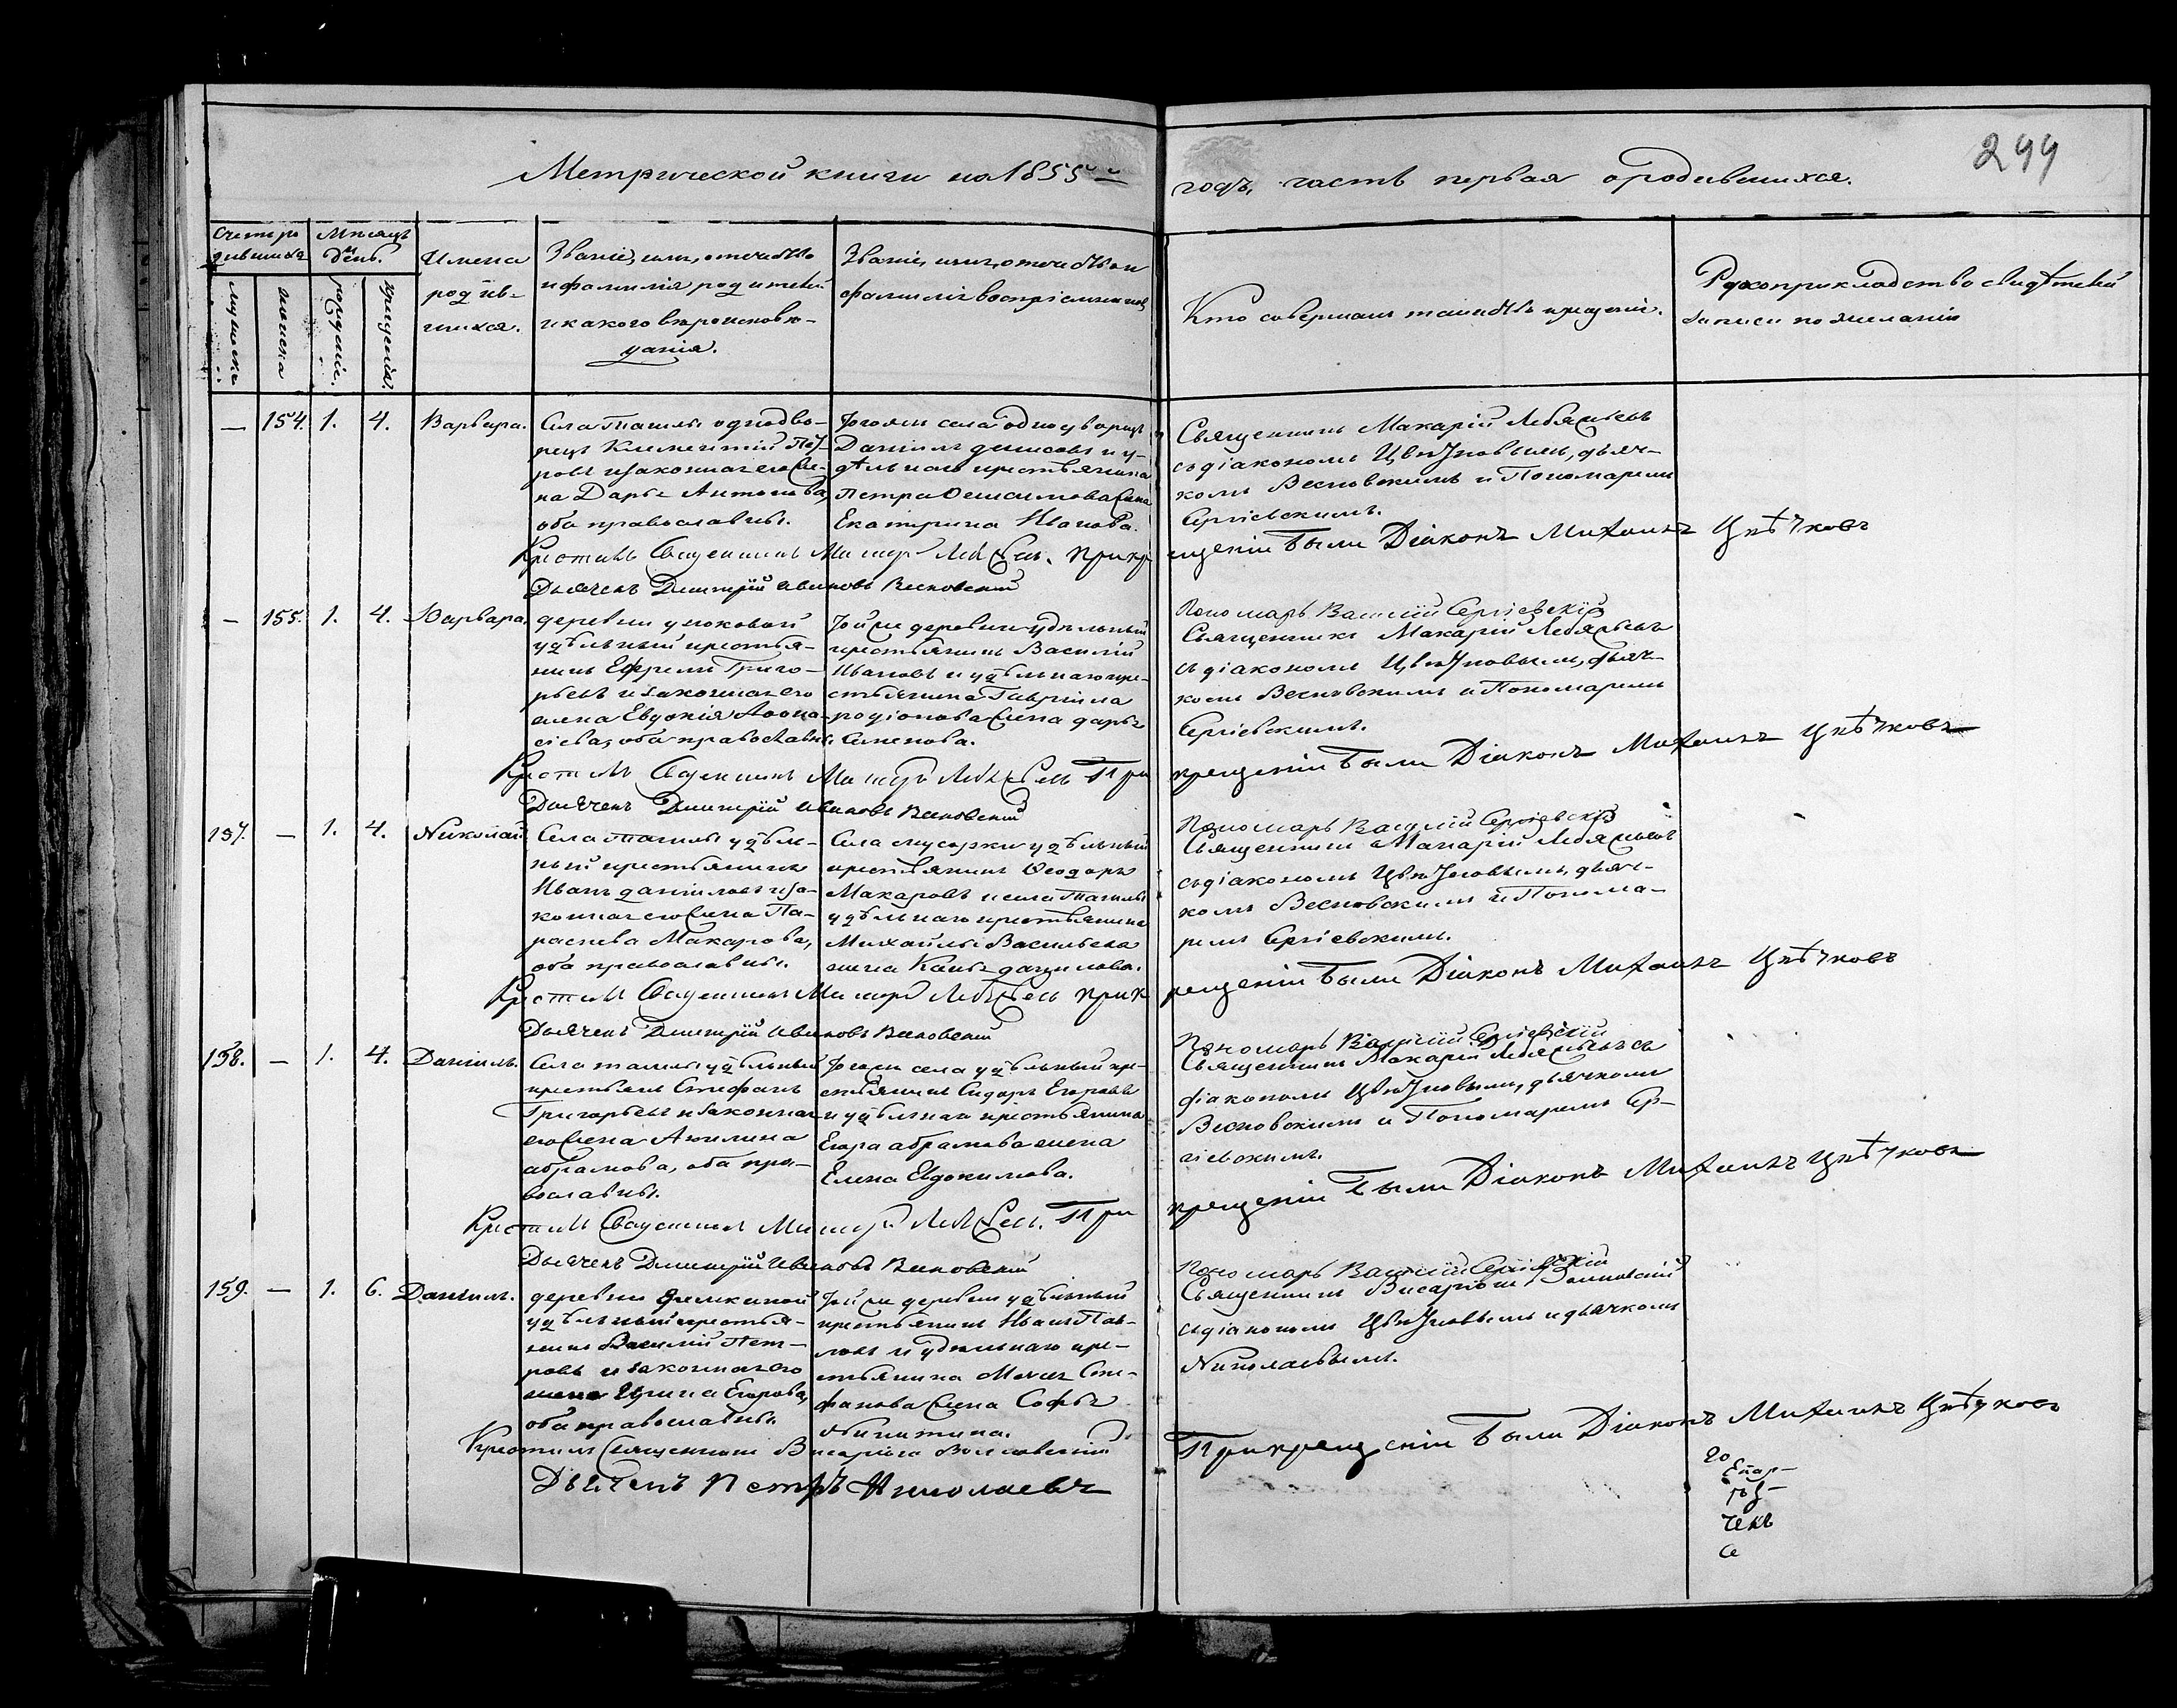 299
Метрической книги на 1855й годъ, часть первая о родившихся.
Счетъ ро
дившихся
Мѣсяцъ
и
день.
мужеска
женска
рожденіе.
крещенія.
Имена
родив-
шихся.
Званіе, имя, отечество
и фамилія родителей
и какого вѣроисповѣ-
данія.
Званіе, имя, отечество и
фамилія воспріемниковъ
Кто совершалъ таинство крещенія.
Рукоприкладство свидѣтелей
записи по желанію
— 154. 1. 4. Варвара.
Села Ташлы однодво-
рецъ Климентій Пет-
ровъ и законная его же-
на Дарья Антонова,
оба православны.
Тогоже села однодворецъ
Даніилъ Денисовъ и у-
дѣльнаго крестьянина
Петра Онисимова жена
Екатерина Иванова.
Священникъ Макарій Лебяжьевъ
съ діакономъ Цвѣтковымъ, дьяч-
комъ Весновскимъ и Пономаремъ
Сергіевскимъ.
Крестилъ Священникъ Макарій Лебяжьевъ. При кре
щеніи были Діаконъ Михаилъ Цвѣтковъ
Дьячекъ Димитрій Ивановъ Весновскій
Пономарь Василій Сергіевскій
— 155. 1. 4. Варвара.
деревни
удѣльный крестья-
нинъ Ефремъ Григо-
рьевъ и законная его
жена Евдокія Афона-
сіева, оба православны.
Тойже деревни удѣльный
крестьянинъ Василій
Ивановъ и удѣльнаго кре-
стьянина Гавріила
Родіонова жена Дарья
Семенова.
Священникъ Макарій Лебяжьевъ
съ діакономъ Цвѣтковымъ, дьяч-
комъ Весновскимъ и Пономаремъ
Сергіевскимъ.
Крестилъ Священникъ Макарій Лебяжьевъ При
крещеніи были Діаконъ Михаилъ Цвѣтковъ
Дьячекъ Димитрій Ивановъ Весновскій
Пономарь Василій Сергіевскій
157. — 1. 4. Николай.
Села Ташлы удѣль-
ный крестьянинъ
Иванъ Даніиловъ и за-
конная его жена Па-
раскева Макарова,
оба православны.
Села Мусорки удѣльный
крестьянинъ Феодоръ
Макаровъ и села Ташлы
удѣльнаго крестьянина
Михайлы Васильева
жена Данилова.
Священникъ Макарій Лебяжьевъ
съ діакономъ Цвѣтковымъ, дьяч-
комъ Весновскимъ и Понома-
ремъ Сергіевскимъ.
Крестилъ Священникъ Макарій Лебяжьевъ при к
рещеніи были Діаконъ Михаилъ Цвѣтковъ
Дьячекъ Димитрій Ивановъ Весновскій
Пономарь Василій Сергіевскій
158. — 1. 4. Даніилъ.
Села Ташлы удѣльный
крестьянъ Стефанъ
Григорьевъ и законная
его жена Акилина
Абрамова, оба пра-
вославны.
Тогоже села удѣльный кре-
стьянинъ Сидоръ Егоровъ
и удѣльнаго крестьянина
Егора Абрамова жена
Елена Евдокимова.
Священникъ Макарій Лебяжьевъ съ
діакономъ Цвѣтковымъ, дьячкомъ
Весновскимъ и Пономаремъ Сер-
гіевскимъ.
Крестилъ Священникъ Макарій Лебяжьевъ. При
крещеніи были Діаконъ Михаилъ Цвѣтковъ
Дьячекъ Димитрій Ивановъ Весновскій
Пономарь Василій Сергіевскій
159. — 1. 6. Даніилъ.
деревни
удѣльный крестья-
нинъ Василій Пет-
ровъ и законная его
жена Ирина Егорова,
оба православны.
Тойже деревни удѣльный
крестьянинъ Иванъ Пав-
ловъ и удѣльнаго кре-
стьянина Сте-
фанова жена Софья
Никитина.
Священникъ Висаріонъ
съ діакономъ Цвѣтковымъ и дьячкомъ
Николаевымъ.
Крестилъ Священникъ Висаріонъ
При крещеніи были Діаконъ Михаилъ Цвѣтковъ
Дьячекъ Петръ Николаевъ